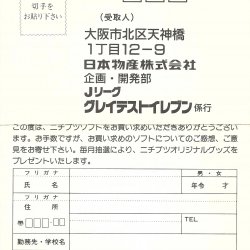 切手を
お貼り下さい
(受取人)
大阪市北区天神橋
1丁目12−9
日本物産株式会社
企画・開発部
Jリーグ
グレイテストイレブン係行
この度は、ニチブツソフトをお買い求めいただきありがとうござい
ます。お手数ですが、本ソフトについてのご感想、ご意
見をお寄せ下さい。毎月抽選により、ニチブツオリジナルグッズを
プレゼントいたします。
フリガナ
男・女
氏名
年令 才
フリガナ
住所
〒□□□-□□
TEL
勤務先・学校名